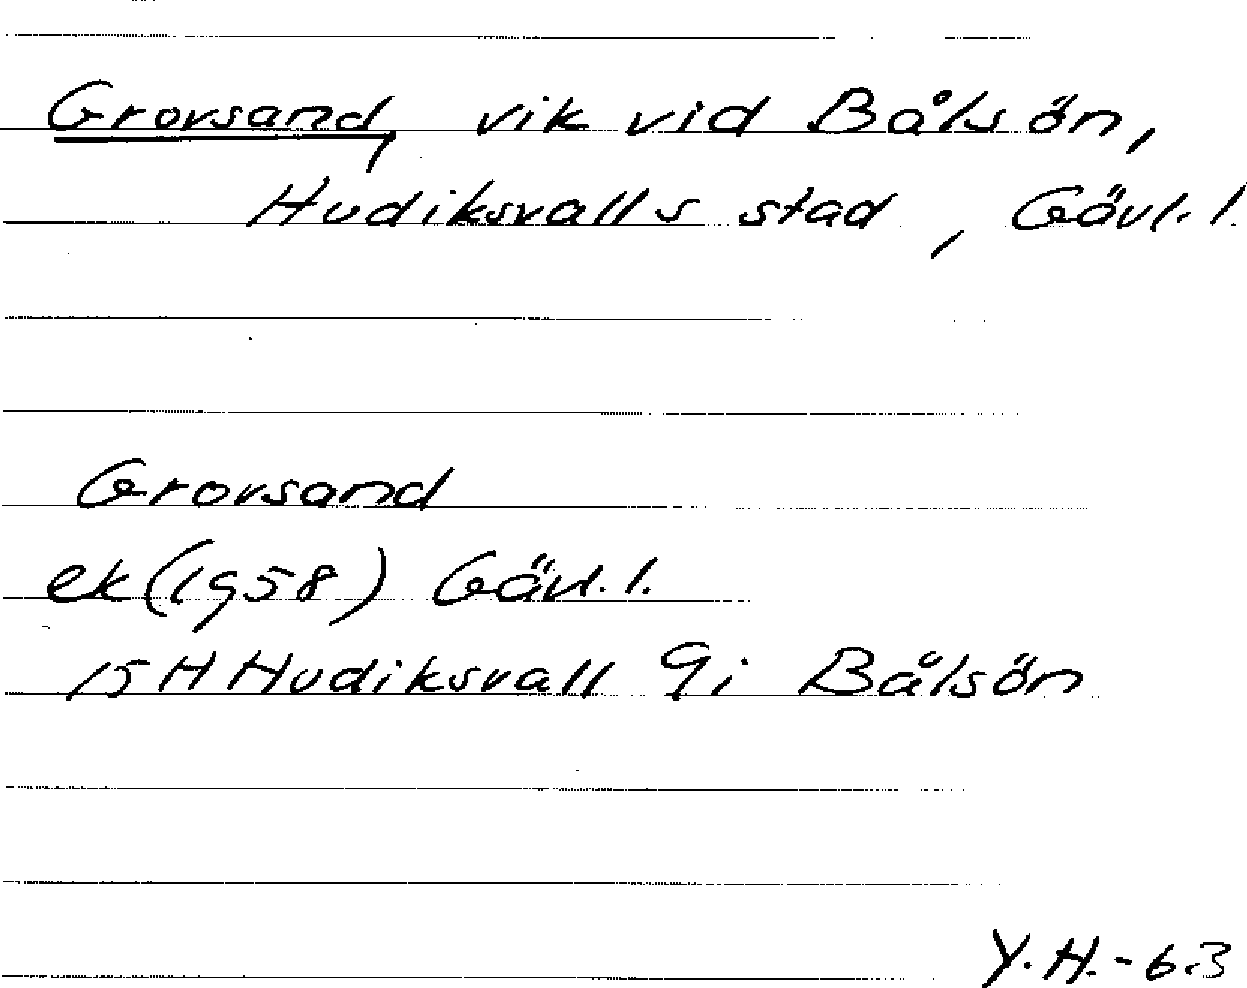 Grovsand, vik vid Bålsön,
Hudiksvalls stad, Gävl. l.
Grovsand
ek (1958) Gävl. l.
15H Hudiksvall 9i Bålsön
Y.H.-63